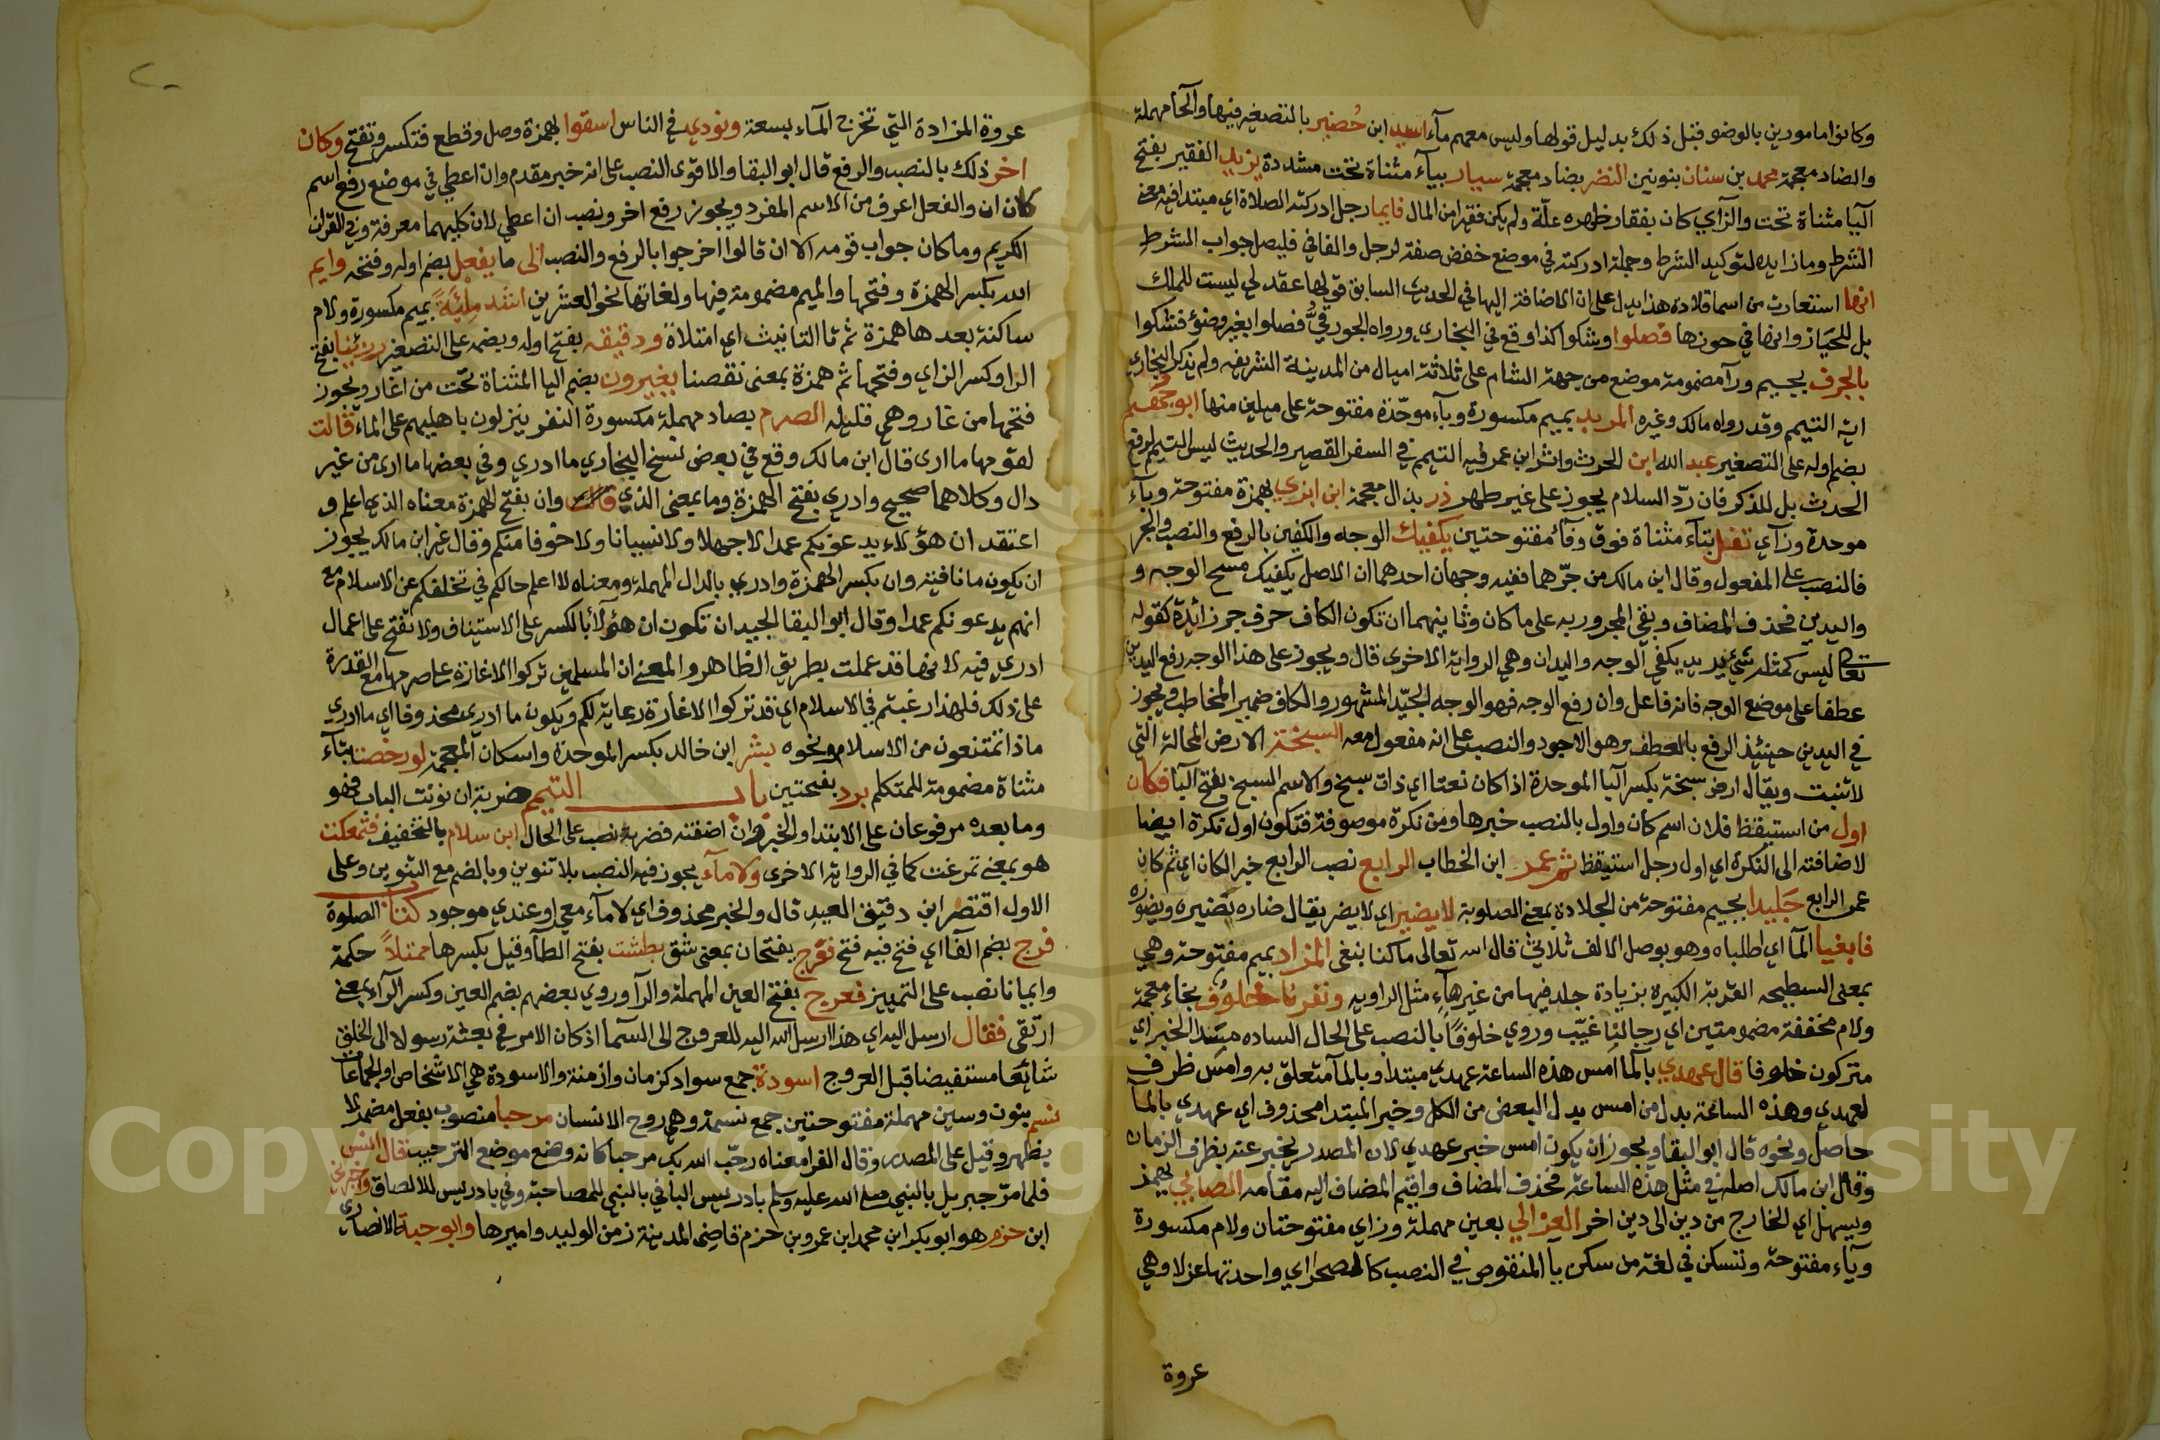 وكانوا مامورين بالوضو قبل ذلك بدليل قولها وليس معهم مآء اسيد ابن حُضير بالتصغير فيها والحا مهملة
والضاد معجمة محمد بن سنان بنونين النضر بضاد معجمة سيار بيآء مثناة تحت مشددة يزيد الفقير بفتح
اليا مثناة تحت والزآي كان بفقار ظهره علّة ولم يكن فقيرا من المال فايما رجل ادركته الصلاة اي مبتدا فيه معنى
الشرط وما زايده لتوكيد الشرط وجملة ادركته في موضع خفض صفة لرجل والفا في فليصل جواب الشرط
انها استعارت من اسما قلادة هذا يدل على ان الاضافة اليها في الحديث السابق قولها عقد لي ليست للملك
بل للحيازة وانها في حوزها فصلوا وشكوا كذا وقع في البخاري ورواه الجورقي فصلوا بغير وضوء فشكوا
بالجرف بجيم ورآ مضمومة موضع من جهة الشام على ثلاثة اميال من المدينة الشريفه ولم يذكر البخاري
انه التيمم وقد رواه مالك وغيره المربد بميم مكسورة وبآء موحّدة مفتوحة على ميلين منها ابو جهيم
بضم اوله على التصغير عبد الله ابن الحرث واثر ابن عمر فيه التيمم في السفر القصير والحديث ليس التيمم لرفع
الحدث بل للذكر فان ردّ السلام يجوز على غير طهر ذر بذال معجمة ابن ابزي بهمزة مفتوحة وبآء
موحدة وزآي تفل بتآء مثناة فوق وفآء مفتوحتين يكفيك الوجه والكفين بالرفع والنصب والجر
فالنصب على المفعول وقال ابن مالك من جرّهما ففيه وجهان احدهما ان الاصل يكفيك مسح الوجه و
واليدين فحذف المضاف وبقي المجرور به على ما كان وثانيهما ان تكون الكاف حرف جر زائدة كقوله
تعالى ليس كمثله شيء يريد يكفي الوجه واليدان وهي الرواية الاخرى قال ويجوز على هذا الوجه رفع اليدين
عطفا على موضع الوجه فانه فاعل وان رفع الوجه فهو الوجه الجيّد المشهور والكاف ضمير المخاطب ويجوز
في اليدين حينئذ الرفع بالعطف وهو الاجود والنصب على انه مفعول معه السبخة الارض المالحة التي
لا تنبت ويقال ارض سبخة بكسر البا الموحدة اذا كان نعتا اي ذات سبخ والاسم السبخ بفتح البا فكان
اول من استيقظ فلان اسم كان واول بالنصب خبرها ومن نكرة موصوفة فتكون اول نكرة ايضا
لاضافته الى النكرة اي اول رجل استيقظ ثم عمر ابن الخطاب الرابع نصب الرابع خبر الكان اي ثم كان
عمر الرابع جَليدا بجيم مفتوحة من الجلادة بمعنى الصلوبة لا يضير اي لا يضر يقال ضاره يَضيره ويضوره
فابغيا المآ اي اطلباه وهو بوصل الالف ثلاثي قال الله تعالى ما كنا نبغي المزاد بميم مفتوحة وهي
بمعنى السطيحه القربة الكبيرة بزيادة جلد فيها من غيرهآء مثل الراويه ونفرنا خلوف بخاء معجمة
ولام مخففة مضمومتين اي رجالنا غيّب وروي خلوفًا بالنصب على الحال الساده مسّد الخبر اي
متركون خلوفا قال عهدي بالمآ امس هذه الساعة عهدي مبتدا وبالمآ متعلق به وامس ظرف
لعهدي وهذه الساعة بدل من امس بدل البعض من الكل وخبر المبتدا محذوف اي عهدي بالمآ
حاصل ونحوه قال ابو البقا ويجوز ان يكون امس خبر عهدي لان المصدر يخبر عنه بظرف الزمان
وقال ابن مالك اصله في مثل هذه الساعة فحذف المضاف واقيم المضاف اليه مقامه الصابي يهمز
ويسهل اي الخارج من دين الى دين اخر العزالي بعين مهملة وزاي مفتوحتان ولام مكسورة
ويآء مفتوحة وتسكن في لغة من سكن يآ المنقوص في النصب كالصحراي واحدتها عزلا وهي
عروة
عروة المزادة التي تخرج المآء بسعة ونودي في الناس اسقوا بهمزة وصل وقطع فتكسر وتفتح وكان
اخر ذلك بالنصب والرفع قال ابو البقا والاقوى النصب على انه خبر مقدم وان اعطي في موضع رفع اسم
كان ان والفعل اعرف من الاسم المفرد ويجوز رفع اخر ونصب ان اعطي لان كليهما معرفة وفي القران
الكريم وما كان جواب قومه الا ان قالوا اخرجوا بالرفع والنصب الى ما يفعل بضم اوله وفتحه وايم
الله بكسر الهمزة وفتحها والميم مضمومة فيها ولغاتها نحو العشرين اشد مِلْيَةً بميم مكسورة ولام
ساكنة بعدها همزة ثم تا التانيث اي امتلاة ودقيقه بفتح اوله وبضمه على التصغير رزينا بفتح
الرا وكسر الزاي وفتحها ثم همزة بمعنى نقصنا يغيرون بضم اليا المثناة تحت من اغار ويجوز
فتحها من غار وهي قليله الصرم بصاد مهملة مكسورة النفر ينزلون باهليهم على المآء قالت
لقومها ما ارى قال ابن مالك وقع في بعض نسخ البخاري ما ادري وفي بعضها ما ارى من غير
دال وكلاهما صحيح وادري بفتح الهمزة وما بمعنى الذي وان بفتح الهمزة معناه الذي اعلم و
اعتقد ان هؤلاء يدعونكم عمدا لا جهلا ولا نسيانا ولا خوفا منكم وقال غير ابن مالك يجوز
ان يكون ما نافية وان بكسر الهمزة وادري بالدال المهملة ومعناه لا اعلم حالكم في تخلفكم عن الاسلام مع
انهم يدعونكم عمدا وقال ابو البقا الجيد ان تكون ان هؤلآء بالكسر على الاستيناف ولا تفتح على اعمال
ادري فيه لانها قد عملت بطريق الظاهر والمعنى ان المسلمين تركوا الاغارة على صرمها مع القدرة
على ذلك فلهذا رغبتم في الاسلام اي قد تركوا الاغارة رعاية لكم ويكون ما ادري محذوفا اي ما ادري
ماذا تمتنعون من الاسلام ونحوه بشر ابن خالد بكسر الموحدة واسكان المعجمة لو رخصت بتآء
مثناة مضمومة للمتكلم برد بفتحتين باب التيمم ضربة ان نونت الباب فهو
وما بعده مرفوعان على الابتدا والخبر وان اضفته فضربة نصب على الحال ابن سلام بالتخفيف فتمعكت
هو بمعنى تمرغت كما في الرواية الاخرى ولا مآء يجوز فيه النصب بلا تنوين وبالضم مع التنوين وعلى
الاول اقتصر ابن دقيق العيد قال والخبر محذوف اي لا مآء معي او عندي موجود كتاب الصلوة
فرج بضم الفآء اي فتح فيه فتح ففرج بفتحان بمعنى شق بطشت بفتح الطآ وقيل بكسرها ممتلأً حكمة
وايمانا نصب على التمييز فعرج بفتح العين المهملة والرآ وروي بعضهم بضم العين وكسر الرآء بمعنى
ارتقى فقال ارسل اليه اي هذا ارسل الله اليه للعروج الى السمآ اذ كان الامر في بعثته رسولا الى الخلق
شائعا مستفيضا قبل العروج اسودة جمع سواد كزمان وازمنة والاسودة هي الاشخاص او الجماعات
نسم بنون وسين مهملة مفتوحتين جمع نسمة وهي روح الانسان مرحبا منصوب بفعل مضمر لا
يظهر وقيل على المصدر وقال الفرا معناه رحّب الله بك مرحبا كانه وضع موضع الترحيب قال انس
فلما مرّ جبريل بالنبي صلى الله عليه وسلم بادريس البا في بالنبي للمصاحبة وفي بادريس للالصاق واخبرني
ابن حزم هو ابو بكر ابن محمد ابن عمرو بن حزم قاضي المدينة زمن الوليد واميرها وابو حبة الانصاري
Copyright © King Saud University